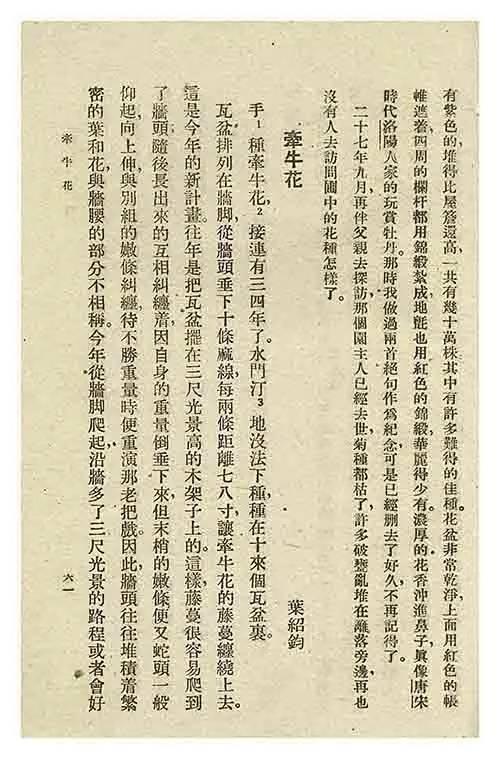 有紫色的，堆得比屋簷還高，一共有幾十萬株，其中有許多難得的佳種。花盆非常乾淨，上面用紅色的帳
帷遮着，四周的欄杆都用錦緞紮成，地氈也用紅色的錦緞，華麗得少有。濃厚的花香沖進鼻子，眞像唐宋
時代洛陽人家的玩賞牡丹。那時我做過兩首絕句作爲紀念，可是已經删去了好久，不再記得了。
二十七年九月，再伴父親去探訪，那個園主人已經去世，菊種都枯了，許多破甕亂堆在籬落旁邊，再也
沒有人去訪問圃中的花種怎樣了。
牽牛花
葉紹鈞
手1種牽牛花，2接連有三四年了。水門汀3地沒法下種，種在十來個瓦盆裏。
瓦盆排列在牆脚，從牆頭垂下十條麻線，每兩條距離七八寸，讓牽牛花的藤蔓纏繞上去。
這是今年的新計畫。往年是把瓦盆擺在三尺光景高的木架子上的。這樣，藤蔓很容易爬到
了牆頭，隨後長出來的互相糾纏着，因自身的重量倒垂下來，但末梢的嫩條便又蛇頭一般
仰起，向上伸，與別組的嫩條糾纏，待不勝重量時便重演那老把戲。因此，牆頭往往堆積着繁
密的葉和花，與牆腰的部分不相稱。今年從牆脚爬起，沿牆多了三尺光景的路程，或者會好
牽牛花
六一